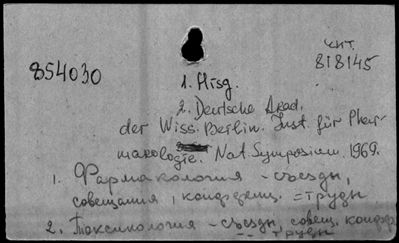 854030
чит.
818145
1. Hisg.
2. Deutsche Akad.
der Wiss. Berlin. Inst. für Phar-
makologie. Nat. Symposium. 1969.
1. Фармакология - съезды,
совещания, конференц. = труды
2. Токсикология - съезды, совещ. конфер.
= труды